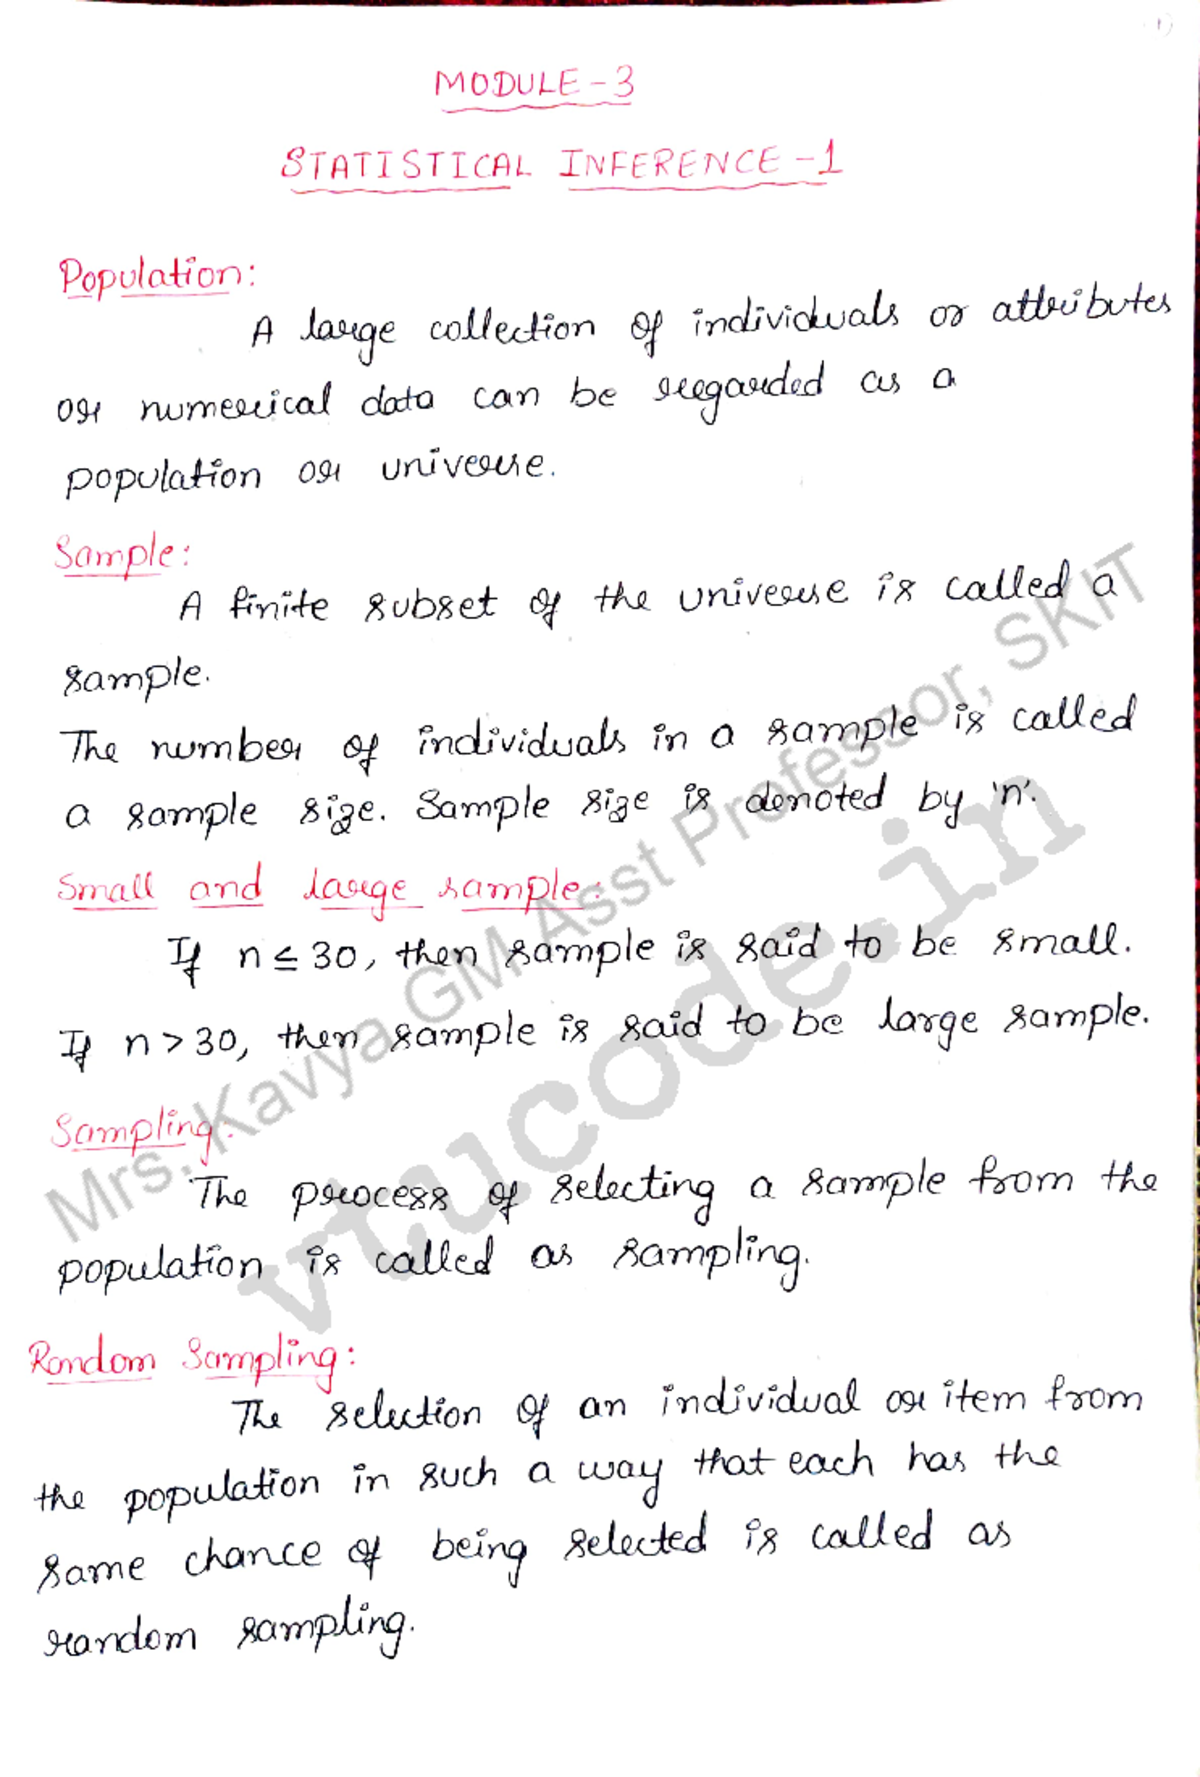 1)
MODULE-3
STATISTICAL INFERENCE-1
Population:
A large collection of individuals or attributes
or numerical data can be regarded as a
population or universe.
Sample:
A finite subset of the universe is called a
sample.
The number of individuals in a sample is called
a sample size. Sample size is denoted by 'n'.
Small and large sample:
If n ≤ 30, then sample is said to be small.
If n > 30, then sample is said to be large sample.
Sampling:
The process of selecting a sample from the
population is called as sampling.
Random Sampling:
The selection of an individual or item from
the population in such a way that each has the
same chance of being selected is called as
random sampling.
Mrs. Kavya GM Asst Professor, SKIT
vtucode.in